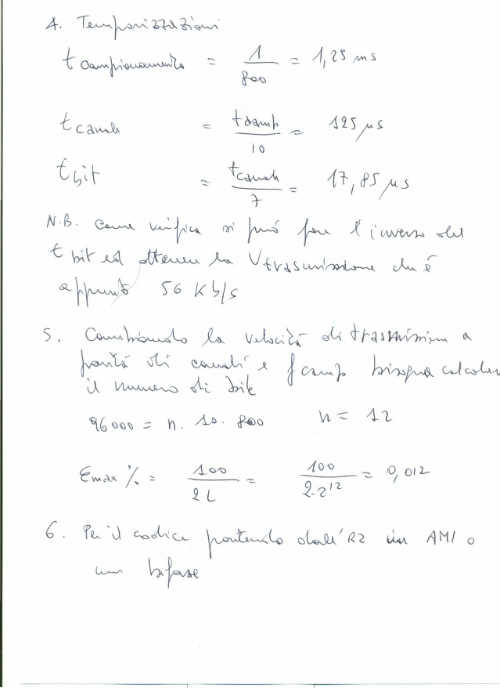 4. Temporizzazioni
t campionamento = 1/800 = 1,25 ms
t canale = t camp/10 = 125 µs
t bit = t canale/7 = 17,85 µs
N.B. come verifica si può fare l'inverso del
t bit ed ottenere la Vtrasmissione che è
appunto 56 Kb/s
5. Cambiando la velocità di trasmissione a
parità di canali e f camp bisogna calcolare
il numero di bit
96000 = n. 10. 800 n = 12
Emax % = 100/2L = 100/2·2^12 = 0,012
6. Per il codice partendo dall' RZ in AMI o
un bifase